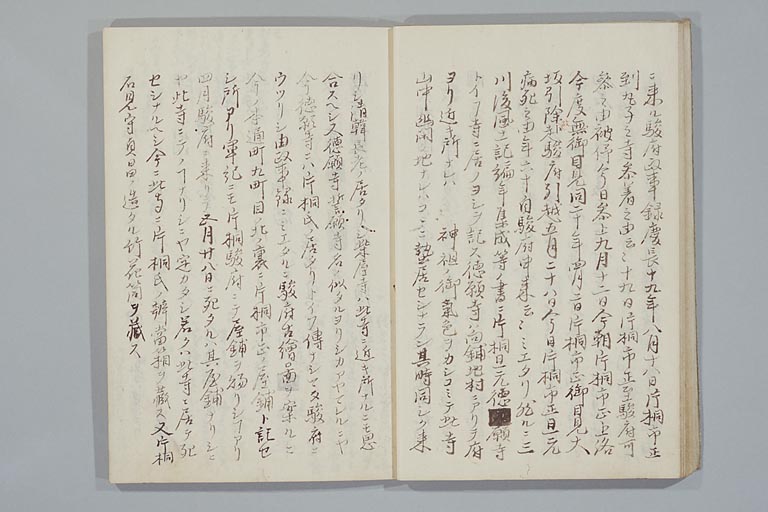 ニ来ル駿府政事録慶長十九年八月十八日片桐市正
到丸子之寺参着之由云々十九日片桐市正至駿府可
参之由被仰今日参上九月十二日今朝片桐市正上洛
今度無御目見同二十年四月二日片桐市正御目見大
坂引除而駿府引越五月二十八日今日片桐市正且元
病死之由年六十自駿府申来云々ミエタリ然ルニ三
川後風土記編年集成等ノ書ニ片桐且元徳願寺
トイフ寺ニ居ノヨシヲ記ス徳願寺ハ向鋪地村ニアリテ府
ヨリ近キ所ナレハ 神祖ノ御気色ヲカシコミテ此寺
山中幽閑ノ地ナレハコヽニ蟄居セシナラン其時同シク来
リシ清韓長老ノ居タリシ薬屋寺ハ此寺ニ近キ所ナルニモ思
合スヘシ又徳願寺誓願寺名ノ似タルヨリシカアヤマレルニヤ
今徳願寺ニハ片桐氏ノ居タリトイフ傳ナシマタ駿府ニ
ウツリシ由政事録ニミエタルニ駿府古繪図ヲ案ルニ
今ノ本通町九町目ノ北ノ裏ニ片桐市正屋鋪ト記セ
シ所アリ軍記ニモ片桐駿府ニテ屋鋪ヲ賜リシコアリ
四月駿府ニ来リテ五月廿八日ニ死タルハ其屋鋪ナリシニ
ヤ此寺ニテノコナリシニヤ定カタシ若クハ此寺ニ居テ死
セシナルヘシ今ニ此寺ニ片桐氏ノ辨當箱ヲ蔵ス又片桐
石見守貞昌ノ造タル竹花筒ヲ蔵ス